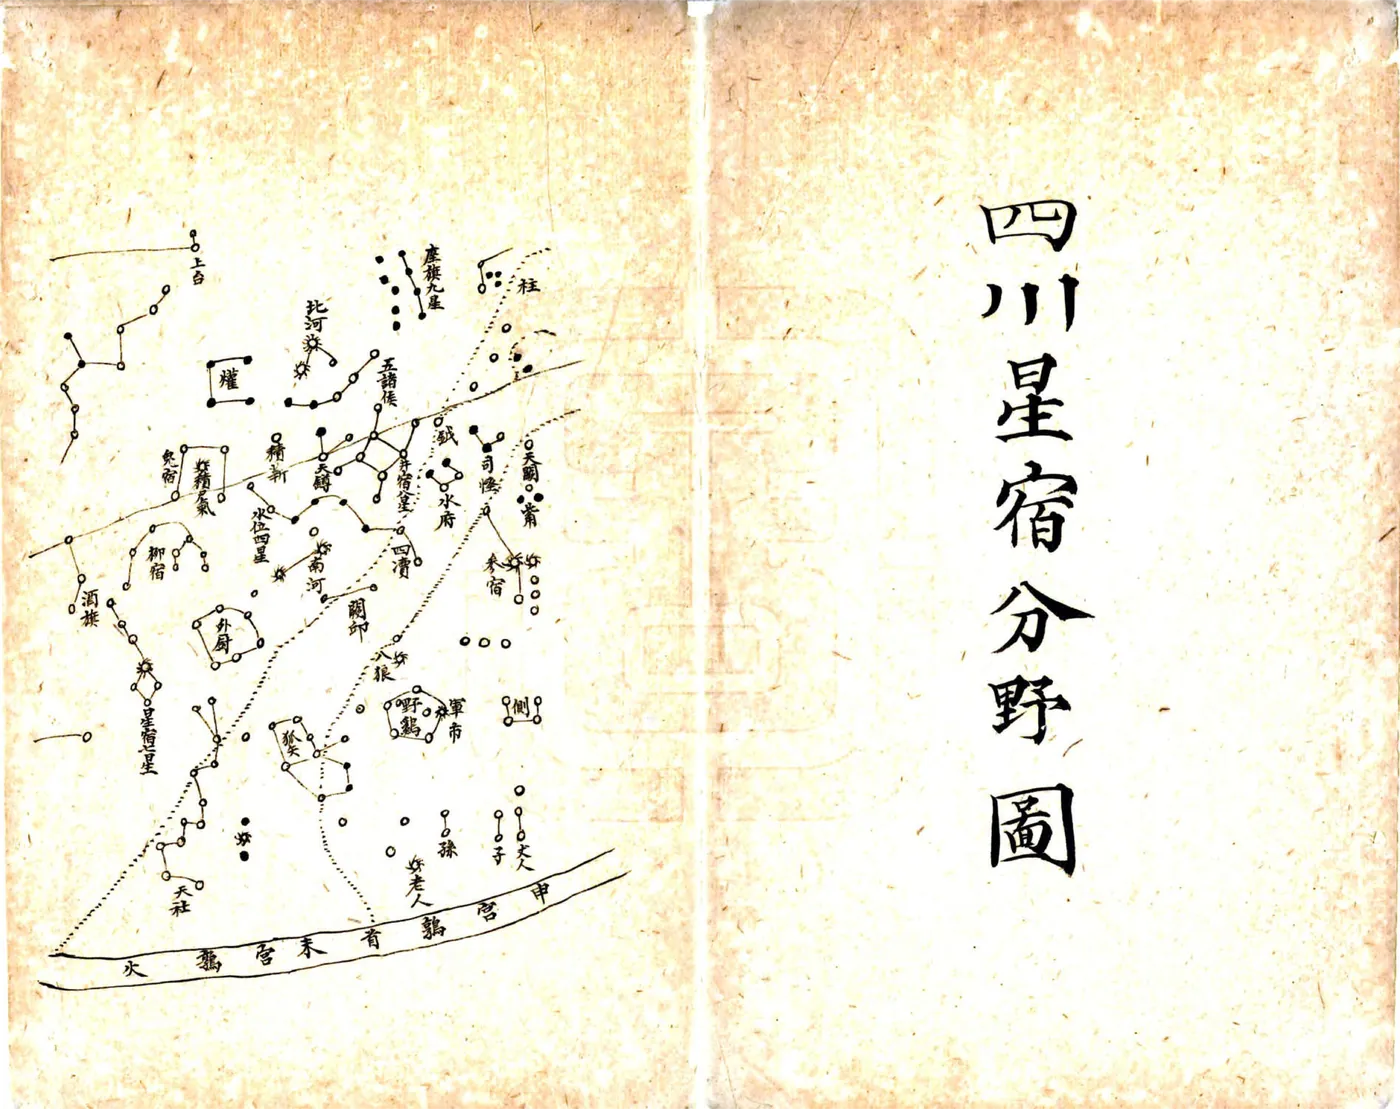 四川星宿分野圖
柱
座旗九星
上台
北河
五諸侯
爟
鉞
司怪
天關
觜
積薪
天罇
井宿八星
水府
鬼宿
積尸氣
水位四星
四瀆
參宿
南河
柳宿
闕邱
酒旗
外厨
狼
軍市
野鷄
側
星宿七星
弧矢
孫
子
丈人
老人
天社
申宮鶉首未宮鶉火